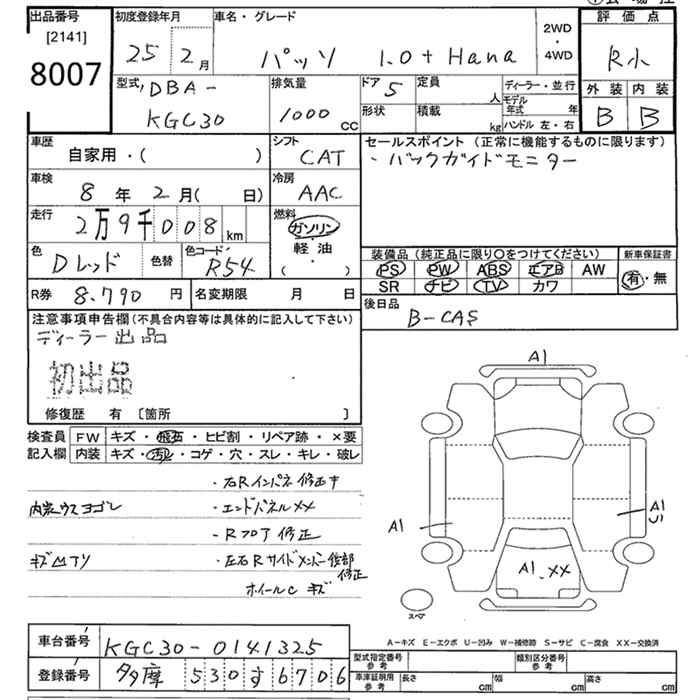 出品番号 初度登録年月 車名・グレード 2WD・4WD 評価点
[2141] 8007 25 2月 パッソ 1.0 + Hana R小
型式 DBA-KGC30 排気量 1000 cc ドア 5 定員 人 ディーラー・並行 外装 内装
形状 積載 kg モデル年式 年 ハンドル 左・右 B B
車歴 自家用・( ) シフト CAT セールスポイント(正常に機能するものに限ります)
・バックガイドモニター
車検 8年 2月( 日) 冷房 AAC
走行 2万9千008 km 燃料 ガソリン・軽油・( )
色 Dレッド 色替 色コード R54 装備品(純正品に限り○をつけてください) 新車保証書
PS PW ABS エアB AW 有・無
SR ナビ TV カワ
R券 8,790円 名変期限 月 日 後日品
B-CAS
注意事項申告欄(不具合内容等は具体的に記入して下さい)
ディーラー出品
初出品
修復歴 有 〔箇所 〕
検査員 FW キズ・飛石・ヒビ割・リペア跡・×要
記入欄 内装 キズ・汚レ・コゲ・穴・スレ・キレ・破レ
・右Rインパネ修正中
内装ウスヨゴレ ・エンドパネルXX
・Rフロア修正
キズ凹アリ ・左右Rサイドメンバー後部修正
ホイールC キズ
A1
A1 A1 U1
A1 . XX
スペア
A-キズ E-エクボ U-凹み W-補修跡 S-サビ C-腐食 XX-交換済
車台番号 KGC30-0141325 型式指定番号 参考 類別区分番号 参考
登録番号 多摩 530 す 6706 車庫証明用 参考 長さ cm 幅 cm 高さ cm